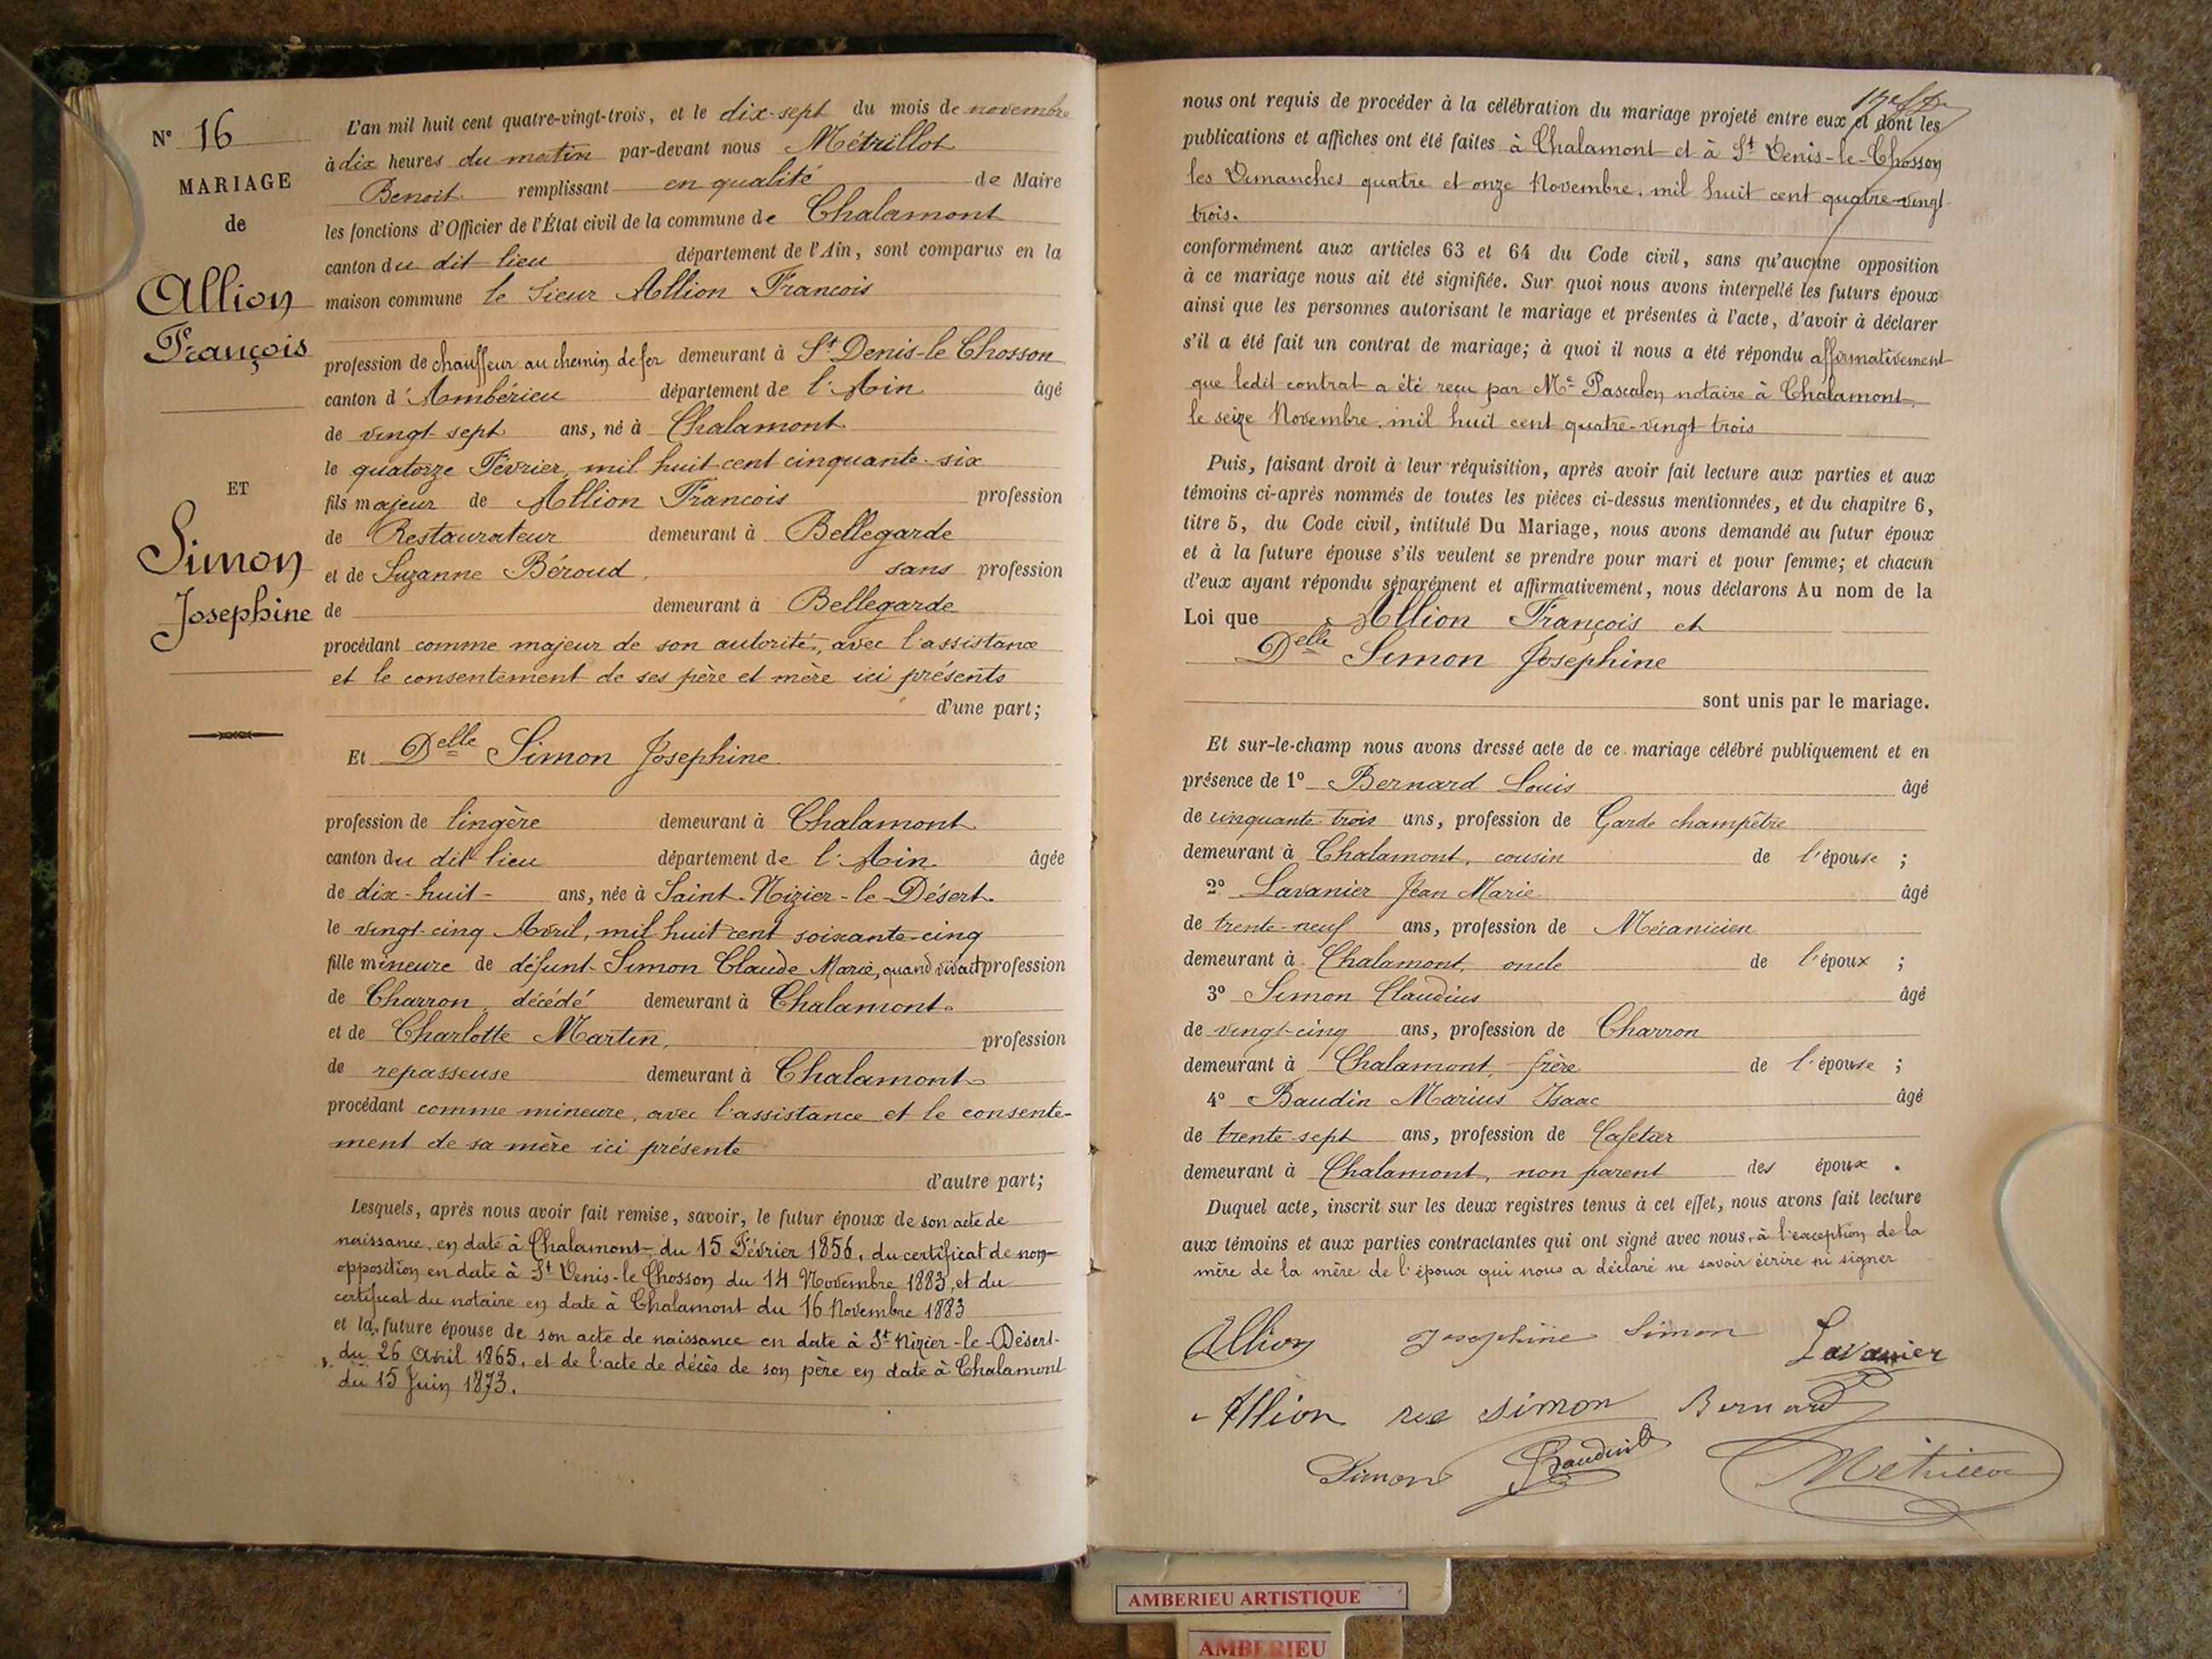 N° 16
MARIAGE
de
Allion
François
ET
Simon
Josephine
L'an mil huit cent quatre-vingt-trois, et le dix-sept du mois de novembre
à dix heures du matin par-devant nous Métrillot
Benoit remplissant en qualité de Maire
les fonctions d'Officier de l'État civil de la commune de Chalamont
canton du dit lieu département de l'Ain, sont comparus en la
maison commune le Sieur Allion Francois
profession de chauffeur au chemin de fer demeurant à St Denis-le Chosson
canton d'Ambérieu département de l'Ain âgé
de vingt sept ans, né à Chalamont
le quatorze Février, mil huit cent cinquante-six
fils majeur de Allion Francois profession
de Restaurateur demeurant à Bellegarde
et de Suzanne Béroud, sans profession
de demeurant à Bellegarde
procédant comme majeur de son autorité, avec l'assistance
et le consentement de ses père et mère ici présents
d'une part;
Et Delle Simon Josephine
profession de lingère demeurant à Chalamont
canton du dit lieu département de l'Ain âgée
de dix-huit- ans, née à Saint-Nizier-le-Désert
le vingt-cinq Avril, mil huit cent soixante-cinq
fille mineure de défunt Simon Claude Marie, quand vivait profession
de Charron, décédé demeurant à Chalamont
et de Charlotte Martin, profession
de repasseuse demeurant à Chalamont
procédant comme mineure, avec l'assistance et le consente-
ment de sa mère ici présente
d'autre part;
Lesquels, après nous avoir fait remise, savoir, le futur époux de son acte de
naissance, en date à Chalamont du 15 Février 1856, du certificat de non-
opposition en date à St Denis-le Chosson du 14 Novembre 1883, et du
certificat du notaire en date à Chalamont du 16 Novembre 1883
et la future épouse de son acte de naissance en date à St Nizier-le-Désert
du 26 Avril 1865, et de l'acte de décès de son père en date à Chalamont
du 15 Juin 1873.
nous ont requis de procéder à la célébration du mariage projeté entre eux et dont les
publications et affiches ont été faites à Chalamont et à St Denis-le-Chosson
les Dimanches quatre et onze Novembre, mil huit cent quatre-vingt
trois.
conformément aux articles 63 et 64 du Code civil, sans qu'aucune opposition
à ce mariage nous ait été signifiée. Sur quoi nous avons interpellé les futurs époux
ainsi que les personnes autorisant le mariage et présentes à l'acte, d'avoir à déclarer
s'il a été fait un contrat de mariage; à quoi il nous a été répondu affirmativement
que ledit contrat a été reçu par Me Pascalon notaire à Chalamont,
le seize Novembre, mil huit cent quatre-vingt trois
Puis, faisant droit à leur réquisition, après avoir fait lecture aux parties et aux
témoins ci-après nommés de toutes les pièces ci-dessus mentionnées, et du chapitre 6,
titre 5, du Code civil, intitulé Du Mariage, nous avons demandé au futur époux
et à la future épouse s'ils veulent se prendre pour mari et pour femme; et chacun
d'eux ayant répondu séparément et affirmativement, nous déclarons Au nom de la
Loi que Allion François et
Delle Simon Josephine
sont unis par le mariage.
Et sur-le-champ nous avons dressé acte de ce mariage célébré publiquement et en
présence de 1° Bernard Louis âgé
de cinquante trois ans, profession de Garde champêtre
demeurant à Chalamont, cousin de l'épouse ;
2° Lavanier Jean Marie âgé
de trente-neuf ans, profession de Mécanicien
demeurant à Chalamont, oncle de l'époux ;
3° Simon Claudius âgé
de vingt-cinq ans, profession de Charron
demeurant à Chalamont, frère de l'épouse ;
4° Baudin Marius Isaac âgé
de trente-sept ans, profession de Cafetier
demeurant à Chalamont, non parent des époux .
Duquel acte, inscrit sur les deux registres tenus à cet effet, nous avons fait lecture
aux témoins et aux parties contractantes qui ont signé avec nous, à l'exception de la
mère de la mère de l'époux qui nous a déclaré ne savoir écrire ni signer
Allion Josephine Simon Lavanier
Allion simon Bernard
Simon Baudin Métrillot
AMBERIEU ARTISTIQUE
AMBERIEU